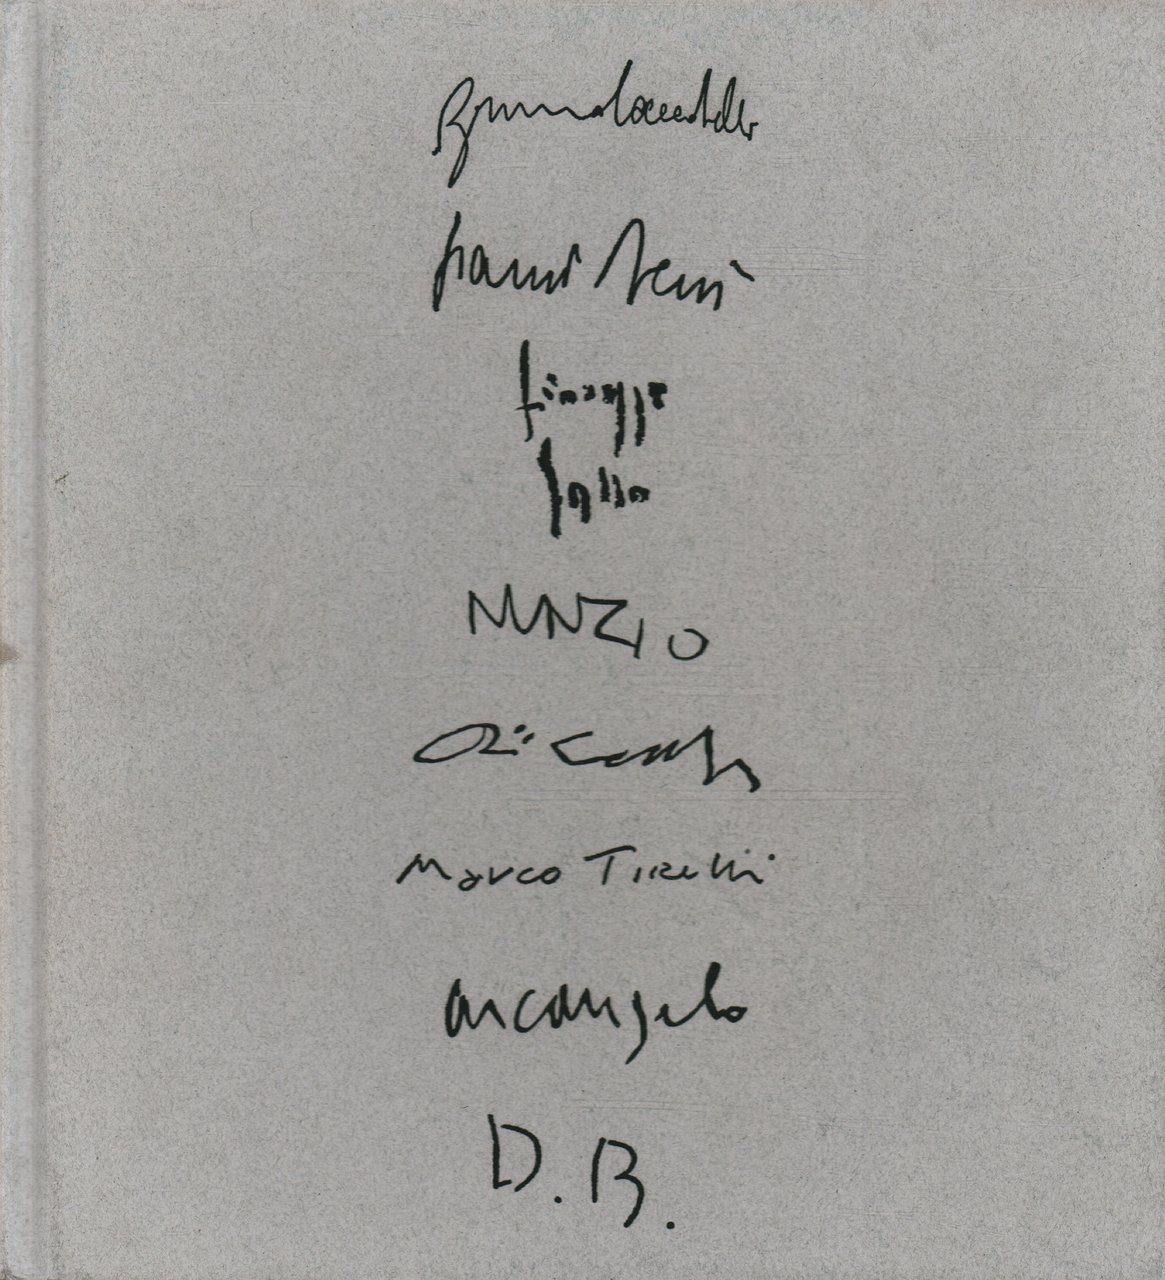 Bruno Ceccobelli
Gianni Dessì
Giuseppe
Gallo
NUNZIO
Marco Tirelli
arcangelo
D.B.